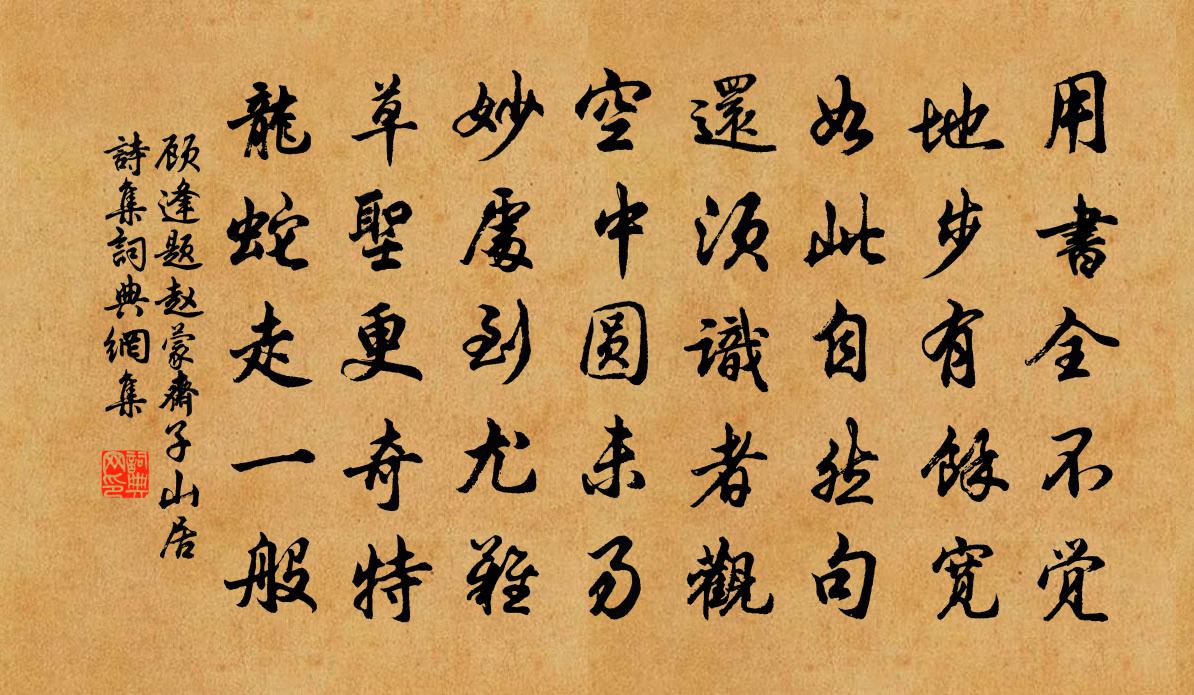 用書全不覚
地步有餘寬
如此自然句
還須識者觀
空中圓未易
妙處到尤難
草聖更奇特
龍蛇走一般
顾逢题赵蒙齋子山居
詩集詞典網集
詞典网印